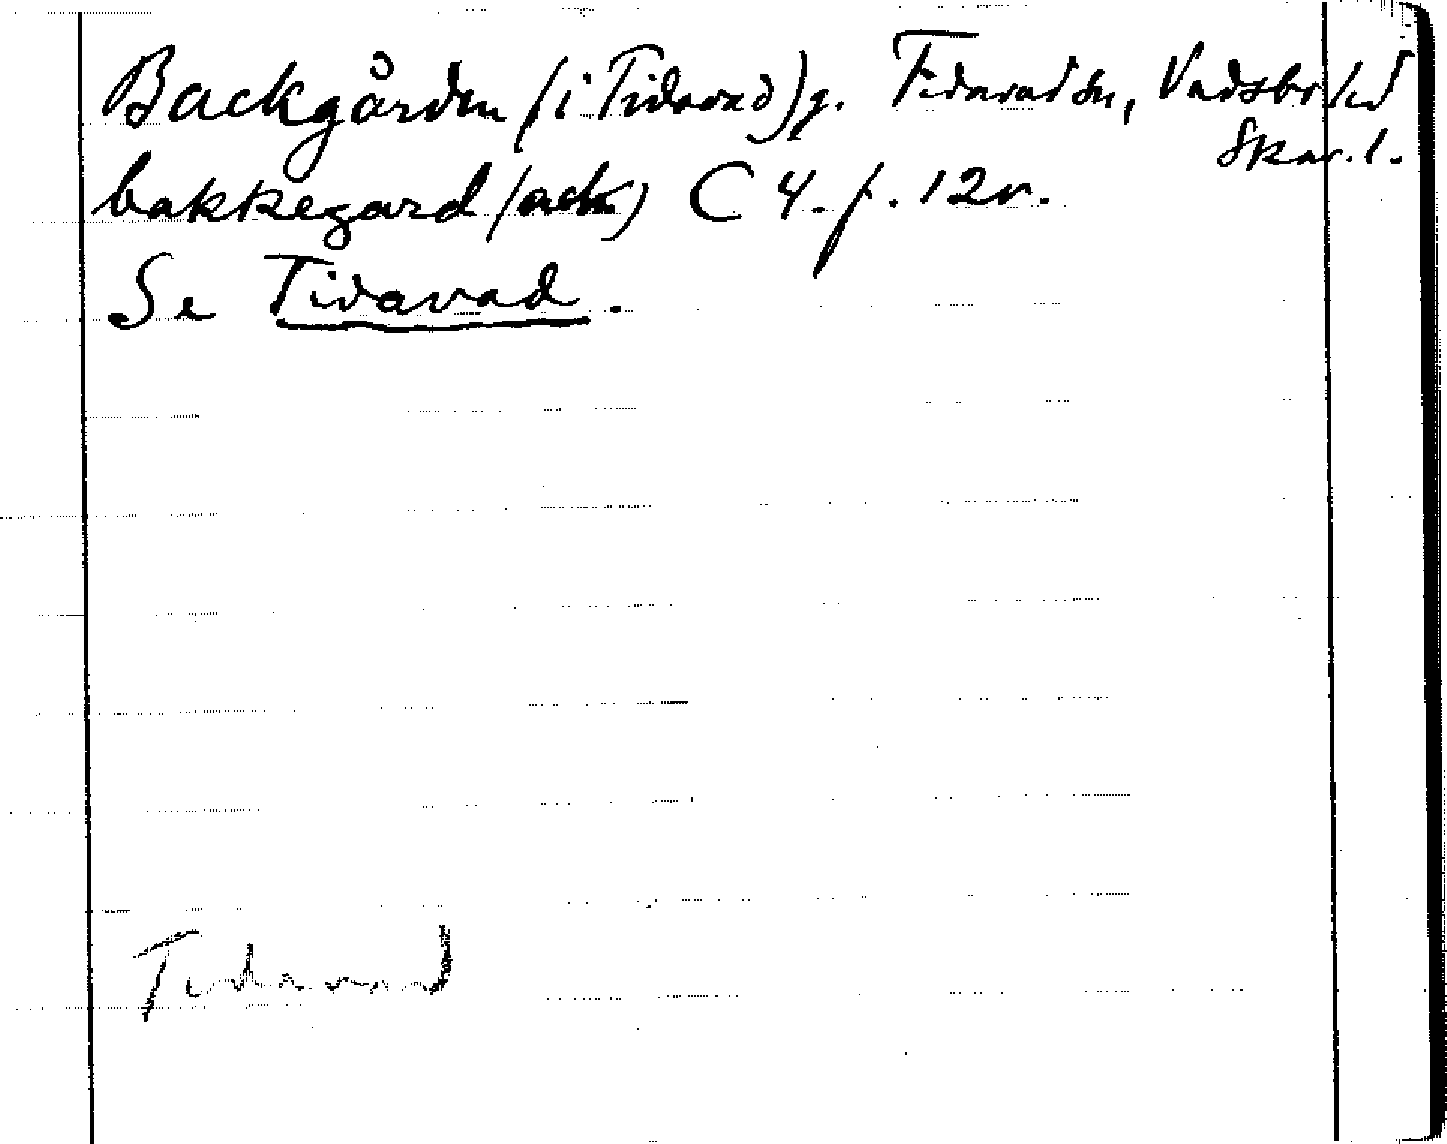 Backgården (i Tidavad) g. Tidavad sn, Vadsbo hd
Skar. l.
bakkegard (ack) C 4. f. 12v.
Se Tidavad.
Tidavad